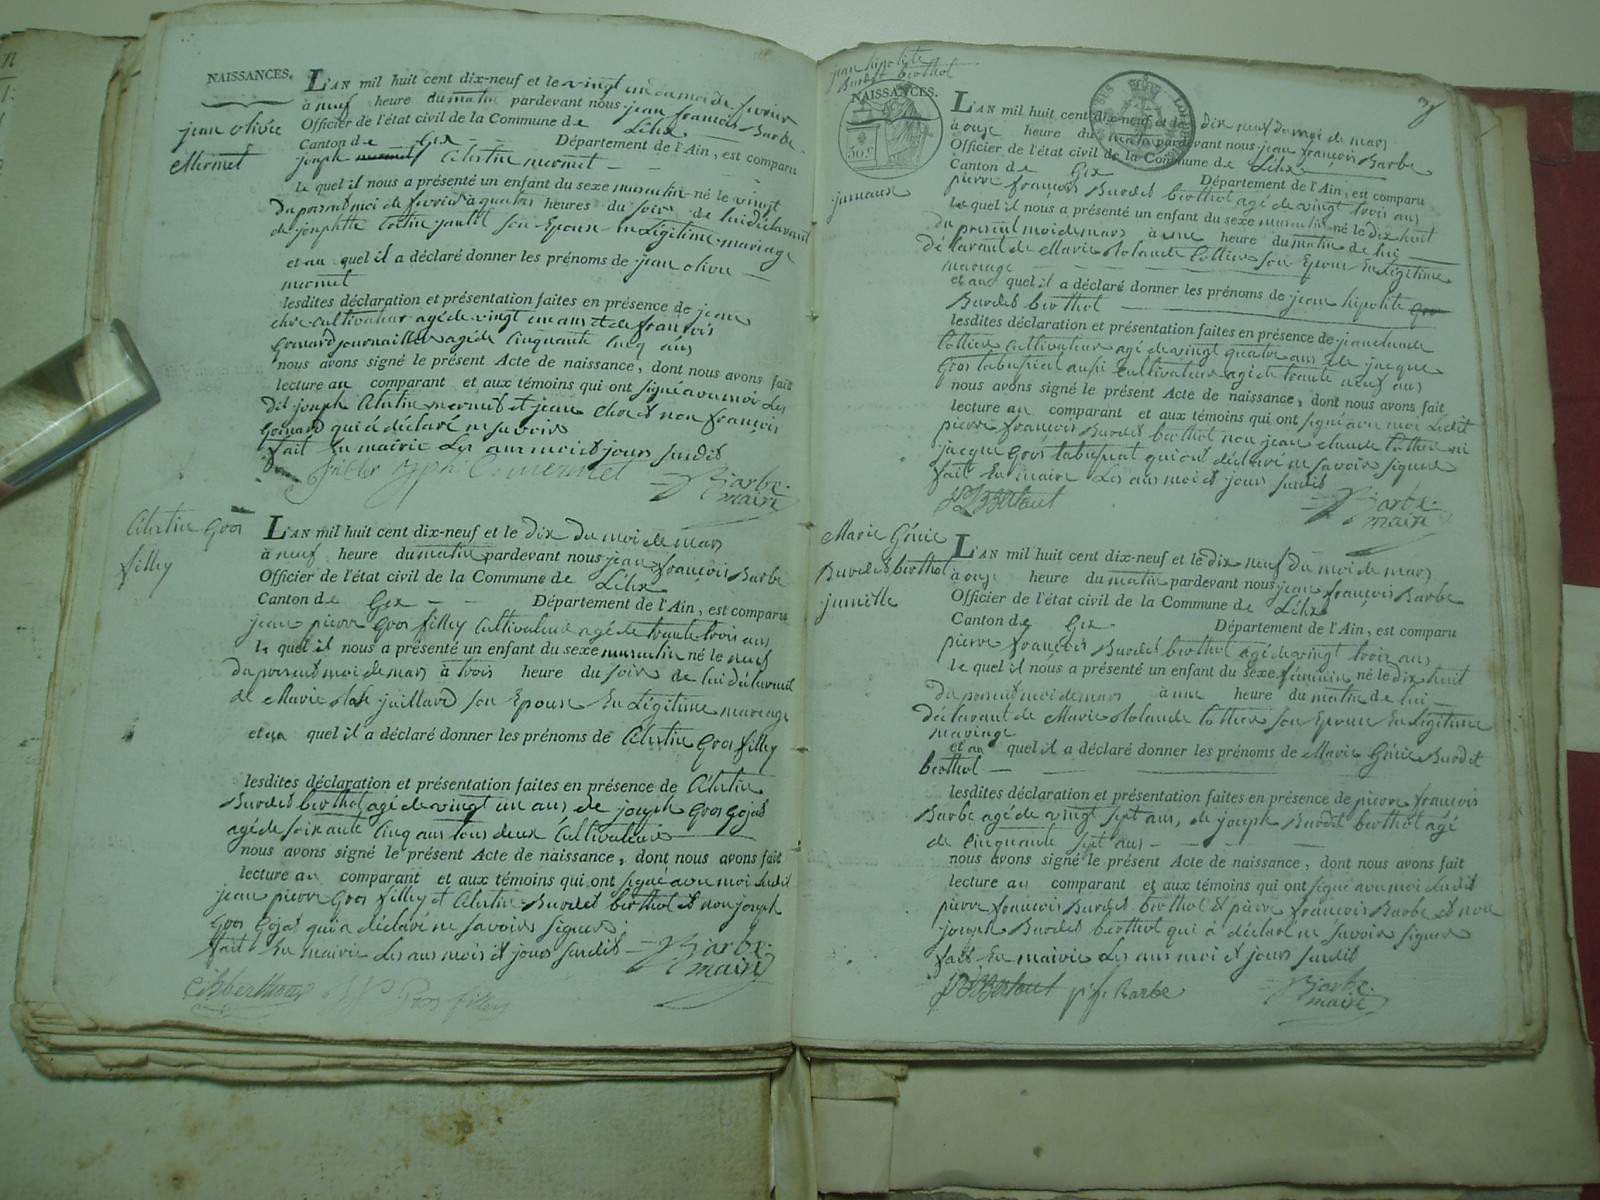 NAISSANCES.
jean olivie
Mermet
L'AN mil huit cent dix-neuf et le vingt un du moi de fevrier
à neuf heure du matin pardevant nous jean françois Barbe
Officier de l'état civil de la Commune de Lélex
Canton de Gex Département de l'Ain, est comparu
joseph mermet Célestin mermet
le quel il nous a présenté un enfant du sexe masculin né le vingt
du present moi de fevrier à quatres heures du soir de lui déclarant
de josephtte son Epouse en Légitime mariage
et au quel il a déclaré donner les prénoms de jean olivie
mermet
lesdites déclaration et présentation faites en présence de jean
cultivateur agé de vingt un ans et de françois
Goinard journaillier agé de Cinquante Cinq ans
nous avons signé le présent Acte de naissance, dont nous avons fait
lecture au comparant et aux témoins qui ont signé avec moi Les
dit joseph Célestin mermet et jean et non françois
Goinard qui à déclaré ne savoir
fait En mairie Les ans moi et jours susdit
Barbe
maire
Célestin Gros
filley
L'AN mil huit cent dix-neuf et le dix du moi de mars
à neuf heure du matin pardevant nous jean françois Barbe
Officier de l'état civil de la Commune de Lélex
Canton de Gex Département de l'Ain, est comparu
jean pierre Gros filley Cultivateur agé de trante trois ans
le quel il nous a présenté un enfant du sexe masculin né le neuf
du present moi de mars à trois heure du soir de lui déclarent
de Marie juillard son Epouse En Légitime mariage
et au quel il a déclaré donner les prénoms de Célestin Gros filley
lesdites déclaration et présentation faites en présence de Célestin
Burdet berthot agé de vingt un ans de joseph Gros Gojat
agé de soixante Cinq ans tous deux Cultivateur
nous avons signé le présent Acte de naissance, dont nous avons fait
lecture au comparant et aux témoins qui ont signé avec moi Ledit
jean pierre Gros filley et Célestin Burdet berthot et non joseph
Gros Gojat qui à déclaré ne savoir signer
fait En mairie Les ans mois et jours susdit
Barbe
maire
Gros filley
jean hipolite
Burdet berthot
NAISSANCES.
jumeaux
L'AN mil huit cent dix-neuf et le dix neuf du moi de mars
à onze heure du matin pardevant nous jean françois Barbe
Officier de l'état civil de la Commune de Lélex
Canton de Gex Département de l'Ain, est comparu
pierre françois Burdet berthot agé de vingt trois ans
le quel il nous a présenté un enfant du sexe masculin né le dix huit
du present moi de mars à une heure du matin de lui
déclarant de Marie Rolande Cottier son Epouse En Légitime
mariage
et au quel il a déclaré donner les prénoms de jean hipolite
Burdet berthot
lesdites déclaration et présentation faites en présence de jean claude
Cottier Cultivateur agé de vingt quatre ans de jacque
Gros tabussiat aussi Cultivateur agé de trante neuf ans
nous avons signé le présent Acte de naissance, dont nous avons fait
lecture au comparant et aux témoins qui ont signé avec moi Ledit
pierre françois Burdet berthot non jean claude Cottier ni
jacque Gros tabussiat qui ont déclaré ne savoir signer
fait En mairie Les ans moi et jours susdit
Barbe
maire
Marie Génie
Burdet berthot
jumelle
L'AN mil huit cent dix-neuf et le dix neuf du moi de mars
à onze heure du matin pardevant nous jean françois Barbe
Officier de l'état civil de la Commune de Lélex
Canton de Gex Département de l'Ain, est comparu
pierre françois Burdet berthot agé de vingt trois ans
le quel il nous a présenté un enfant du sexe féminin né le dix huit
du present moi de mars à une heure du matin de lui
déclarant de Marie Rolande Cottier son Epouse En Légitime
mariage
et au quel il a déclaré donner les prénoms de Marie Génie Burdet
berthot
lesdites déclaration et présentation faites en présence de pierre françois
Barbe agé de vingt sept ans, de joseph Burdet berthot agé
de Cinquante sept ans
nous avons signé le présent Acte de naissance, dont nous avons fait
lecture au comparant et aux témoins qui ont signé avec moi Ledit
pierre françois Burdet berthot et pierre françois Barbe et non
joseph Burdet berthot qui à déclaré ne savoir signer
fait En mairie Les ans moi et jours susdit
Barbe
Barbe
maire